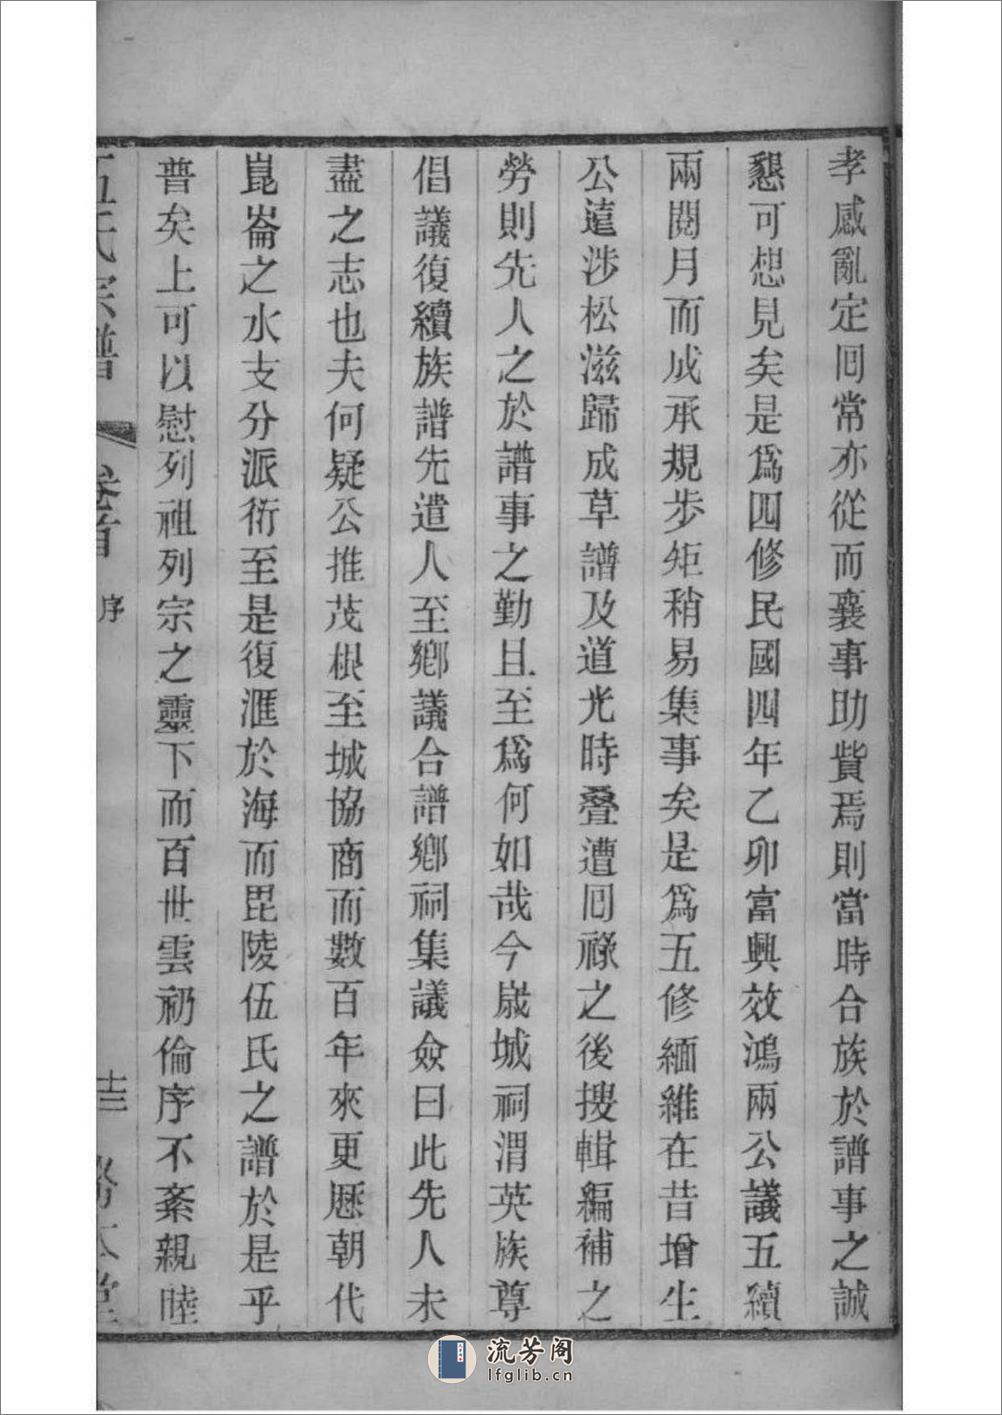 孝感亂定囘常亦從而襄事助貲焉則當時合族於譜事之誠
懇可想見矣是爲四修民國四年乙卯富興效鴻兩公議五續
兩閱月而成承規步矩稍易集事矣是爲五修緬維在昔增生
公遠涉松滋歸成草譜及道光時叠遭囘祿之後搜輯編補之
勞則先人之於譜事之勤且至爲何如哉今歲城祠渭英族尊
倡議復續族譜先遣人至鄉議合譜鄉祠集議僉曰此先人未
盡之志也夫何疑公推茂根至城協商而數百年來更歷朝代
崑崙之水支分派衍至是復滙於海而毘陵伍氏之譜於是乎
普矣上可以慰列祖列宗之靈下而百世雲礽倫序不紊親睦
伍氏宗譜 卷首 序 十三
流芳阁
lfglib.cn